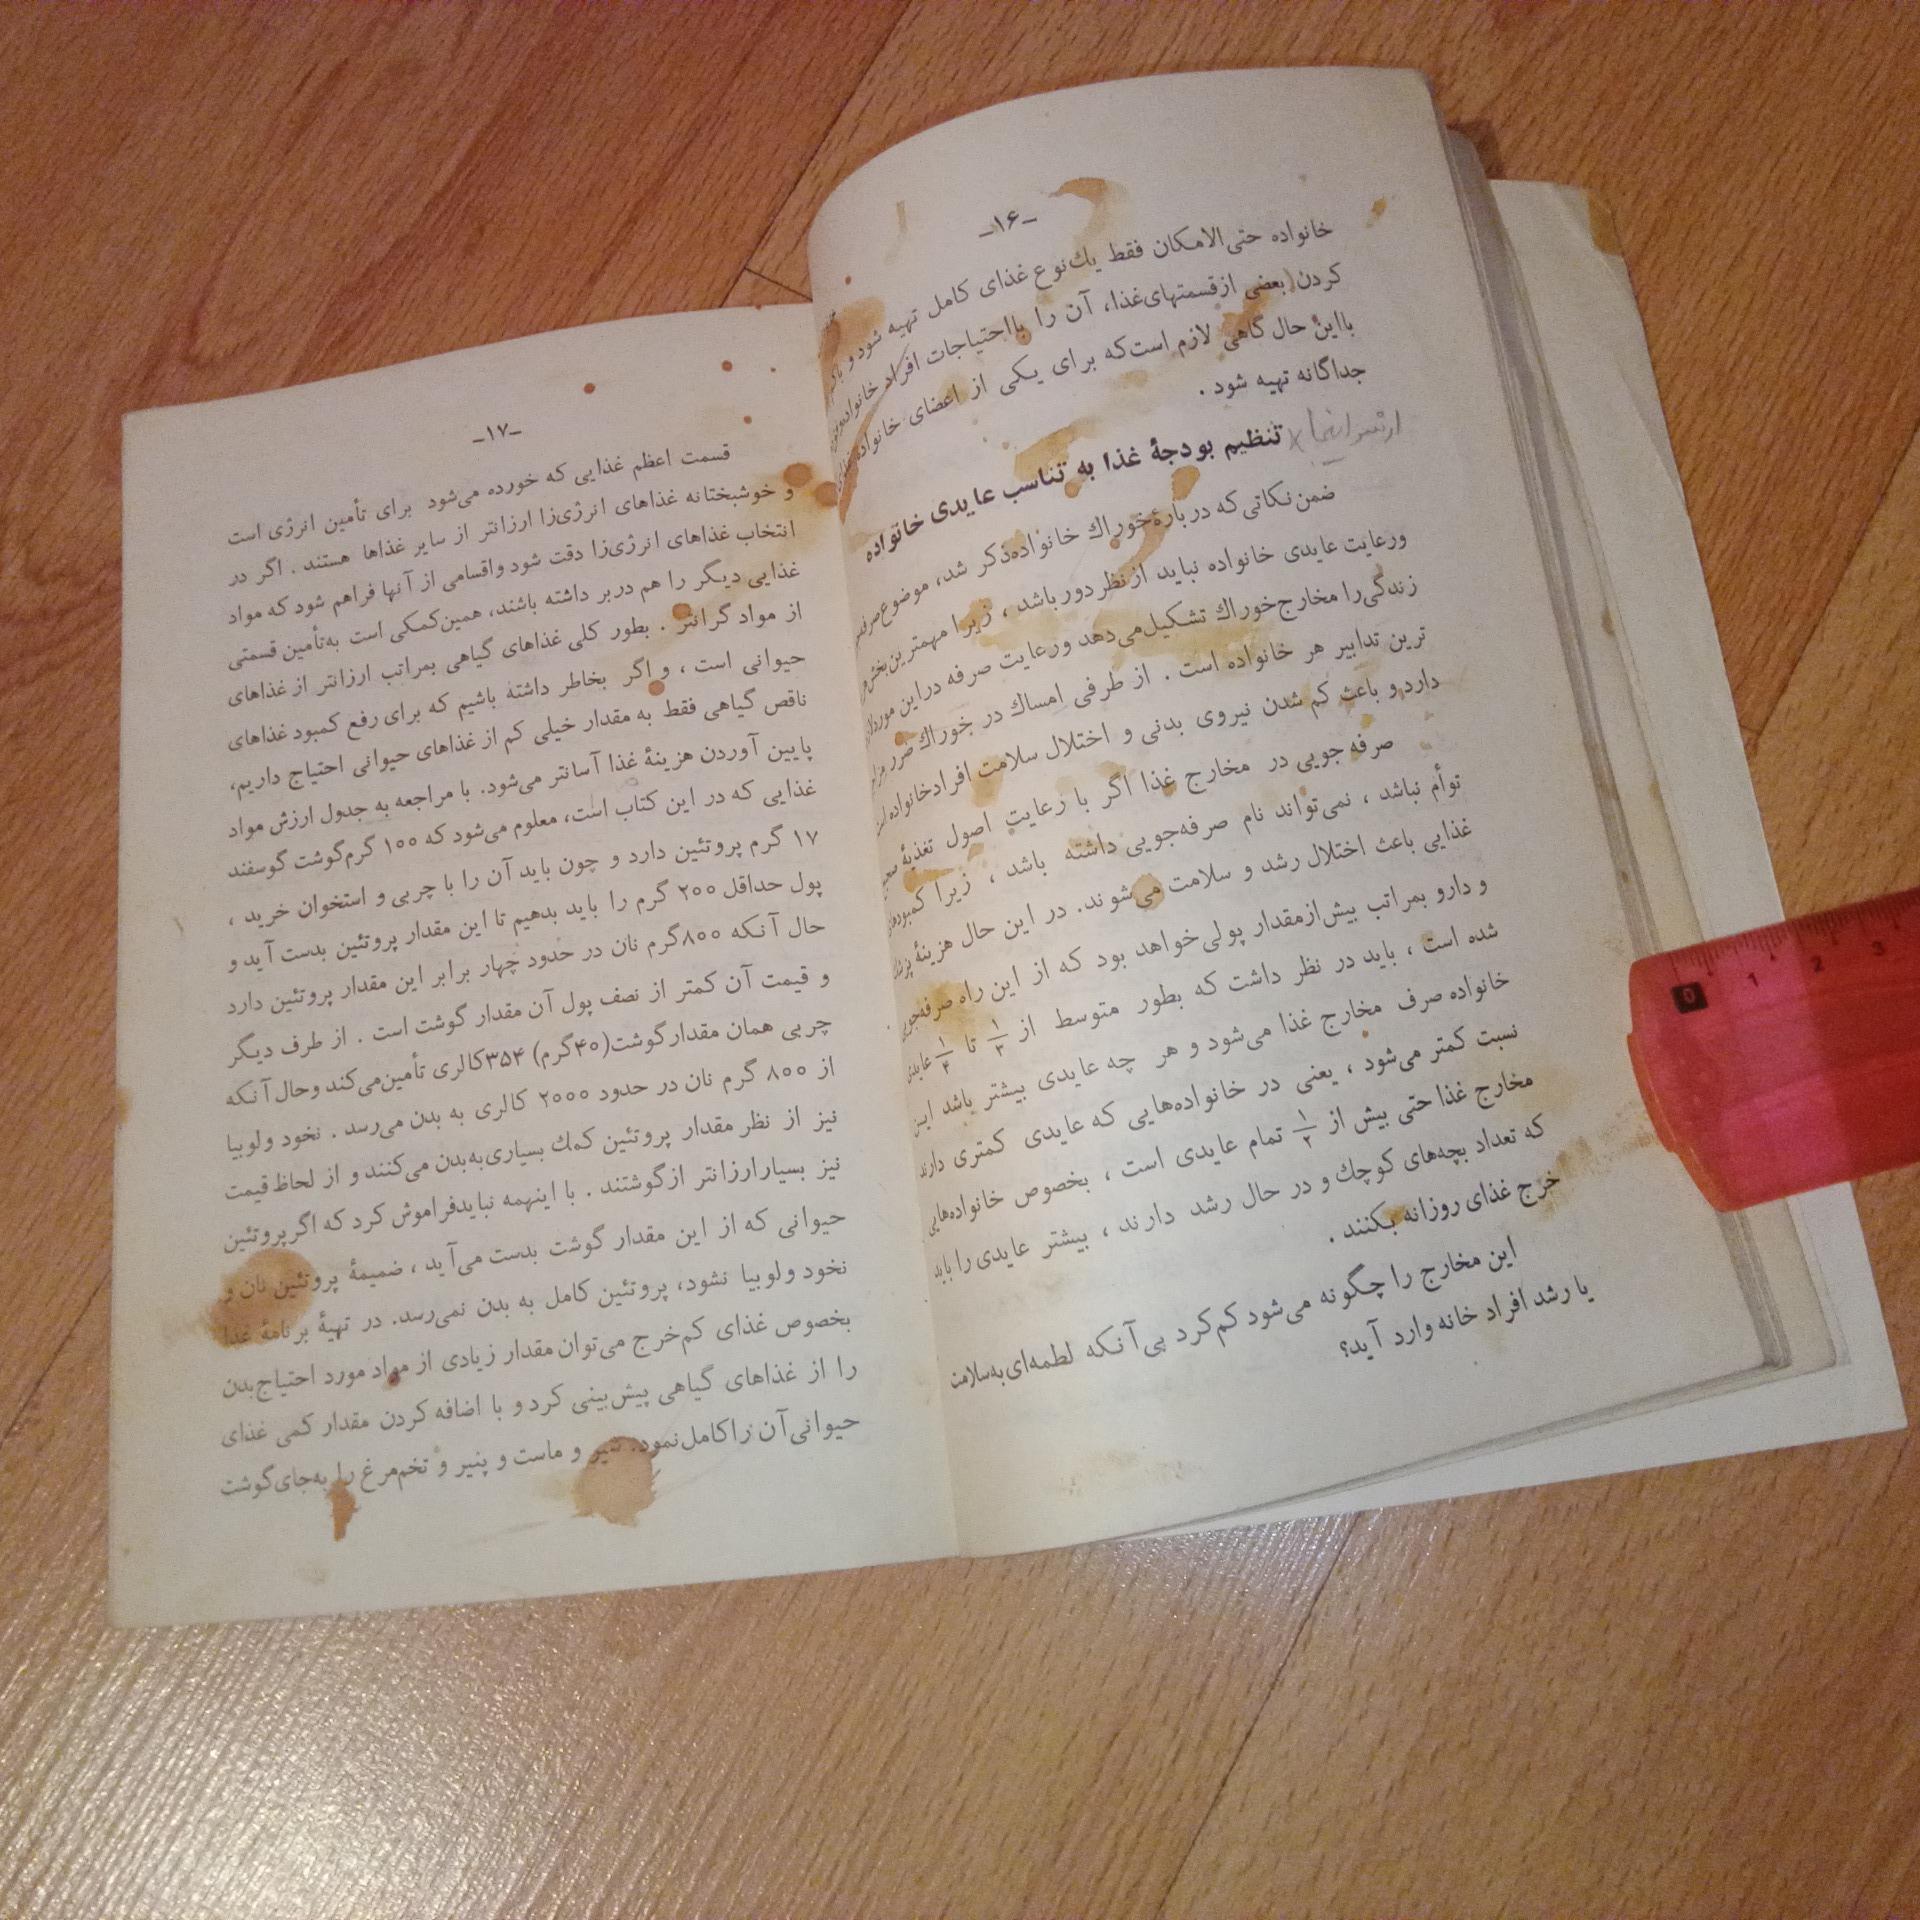 -۱۶-
خانواده حتی‌الامکان فقط یك‌نوع غذای کامل تهیه شود و
کردن (بعضی ازقسمتهای‌غذا، آن را بااحتیاجات افراد
بااین حال گاهی لازم است‌که برای یکی از اعضای خانواده
جداگانه تهیه شود .
تنظیم بودجهٔ غذا به تناسب عایدی خانواده
ضمن‌نکاتی‌که دربارهٔ‌خوراك خانواده‌ذکر شد، موضوع
ورعایت عایدی خانواده نباید ازنظردورباشد ، زیرا مهمترین‌بخش
زندگی‌را مخارج‌خوراك تشکیل‌می‌دهد ورعایت صرفه دراین مورد
ترین تدابیر هر خانواده است . از طرفی امساك در خوراك ضرر
دارد و باعث کم شدن نیروی بدنی و اختلال سلامت افرادخانواده
صرفه جویی در مخارج غذا اگر با رعایت اصول تغذیهٔ
توأم نباشد ، نمی‌تواند نام صرفه‌جویی داشته باشد ، زیرا کمبودهای
غذایی باعث اختلال رشد و سلامت می‌شوند. در این حال هزینهٔ پزشك
و دارو بمراتب بیش‌ازمقدار پولی‌خواهد بود که از این راه صرفه‌جویی
شده است ، باید در نظر داشت که بطور متوسط از ۱/۳ تا ۱/۴ عایدی
خانواده صرف مخارج غذا می‌شود و هر چه عایدی بیشتر باشد این
نسبت کمتر می‌شود ، یعنی در خانواده‌هایی که عایدی کمتری دارند
مخارج غذا حتی بیش از ۱/۲ تمام عایدی است ، بخصوص خانواده‌هایی
که تعداد بچه‌های کوچك و در حال رشد دارند ، بیشتر عایدی را باید
خرج غذای روزانه بکنند .
این مخارج را چگونه می‌شود کم‌کرد بی‌آنکه لطمه‌ای‌به‌سلامت
یا رشد افراد خانه وارد آید؟
-۱۷-
قسمت اعظم غذایی که خورده می‌شود برای تأمین انرژی است
و خوشبختانه غذاهای انرژی‌زا ارزانتر از سایر غذاها هستند . اگر در
انتخاب غذاهای انرژی‌زا دقت شود واقسامی از آنها فراهم شود که مواد
غذایی دیگر را هم دربر داشته باشند، همین‌کمکی است به‌تأمین قسمتی
از مواد گرانتر . بطور کلی غذاهای گیاهی بمراتب ارزانتر از غذاهای
حیوانی است ، و اگر بخاطر داشته باشیم که برای رفع کمبود غذاهای
ناقص گیاهی فقط به مقدار خیلی کم از غذاهای حیوانی احتیاج داریم،
پایین آوردن هزینهٔ غذا آسانتر می‌شود. با مراجعه به جدول ارزش مواد
غذایی که در این کتاب است، معلوم می‌شود که ۱۰۰ گرم‌گوشت گوسفند
۱۷ گرم پروتئین دارد و چون باید آن را با چربی و استخوان خرید ،
پول حداقل ۲۰۰ گرم را باید بدهیم تا این مقدار پروتئین بدست آید و
حال آنکه ۸۰۰گرم نان در حدود چهار برابر این مقدار پروتئین دارد
و قیمت آن کمتر از نصف پول آن مقدار گوشت است . از طرف دیگر
چربی همان مقدارگوشت(۴۰گرم) ۳۵۴کالری تأمین‌می‌کند وحال آنکه
از ۸۰۰ گرم نان در حدود ۲۰۰۰ کالری به بدن می‌رسد . نخود ولوبیا
نیز از نظر مقدار پروتئین کمك بسیاری‌به‌بدن می‌کنند و از لحاظ قیمت
نیز بسیارارزانتر ازگوشتند . با اینهمه نبایدفراموش کرد که اگرپروتئین
حیوانی که از این مقدار گوشت بدست می‌آید ، ضمیمهٔ پروتئین نان و
نخود ولوبیا نشود، پروتئین کامل به بدن نمی‌رسد. در تهیهٔ برنامهٔ غذا
بخصوص غذای کم‌خرج می‌توان مقدار زیادی از مواد مورد احتیاج‌بدن
را از غذاهای گیاهی پیش‌بینی کرد و با اضافه کردن مقدار کمی غذای
حیوانی‌آن راکامل‌نمود. شیر و ماست و پنیر و تخم‌مرغ را به‌جای‌گوشت
0 1 2 3